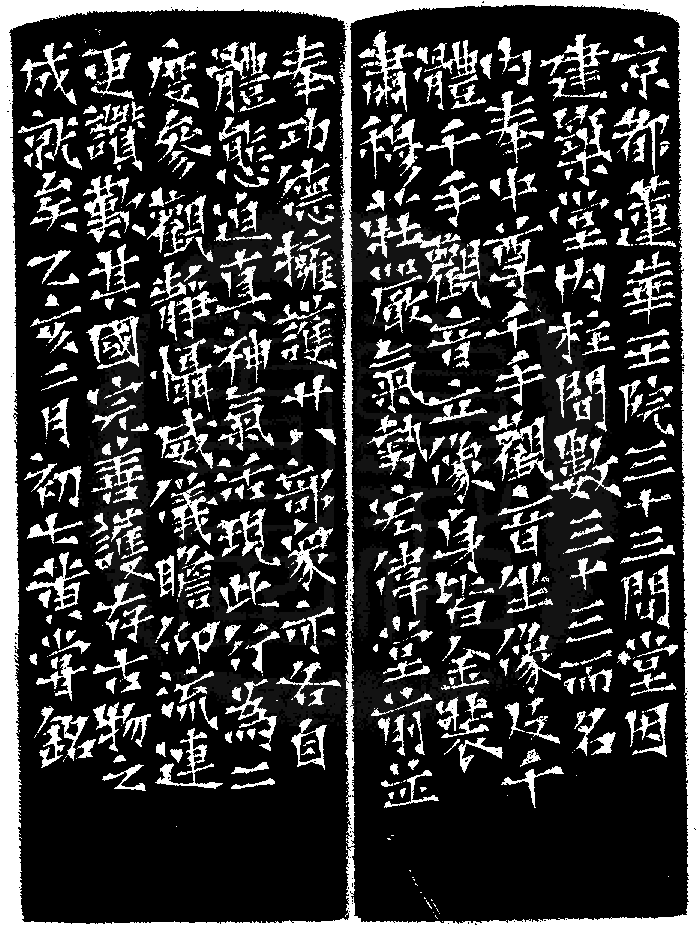 京都蓮華王院三十三間堂因
建築堂内柱間數三十三而名
内奉中尊千手觀音坐像及千
體千手觀音立像身皆金裝
肅穆莊嚴氣勢宏偉堂前並
奉功德擁護廿八部衆亦各自
體態迫真神氣活現此行為二
度參觀靜懾威儀瞻仰流連
更讚歎其國完善護存古物之
成就矣乙亥二月初七黃嘗銘